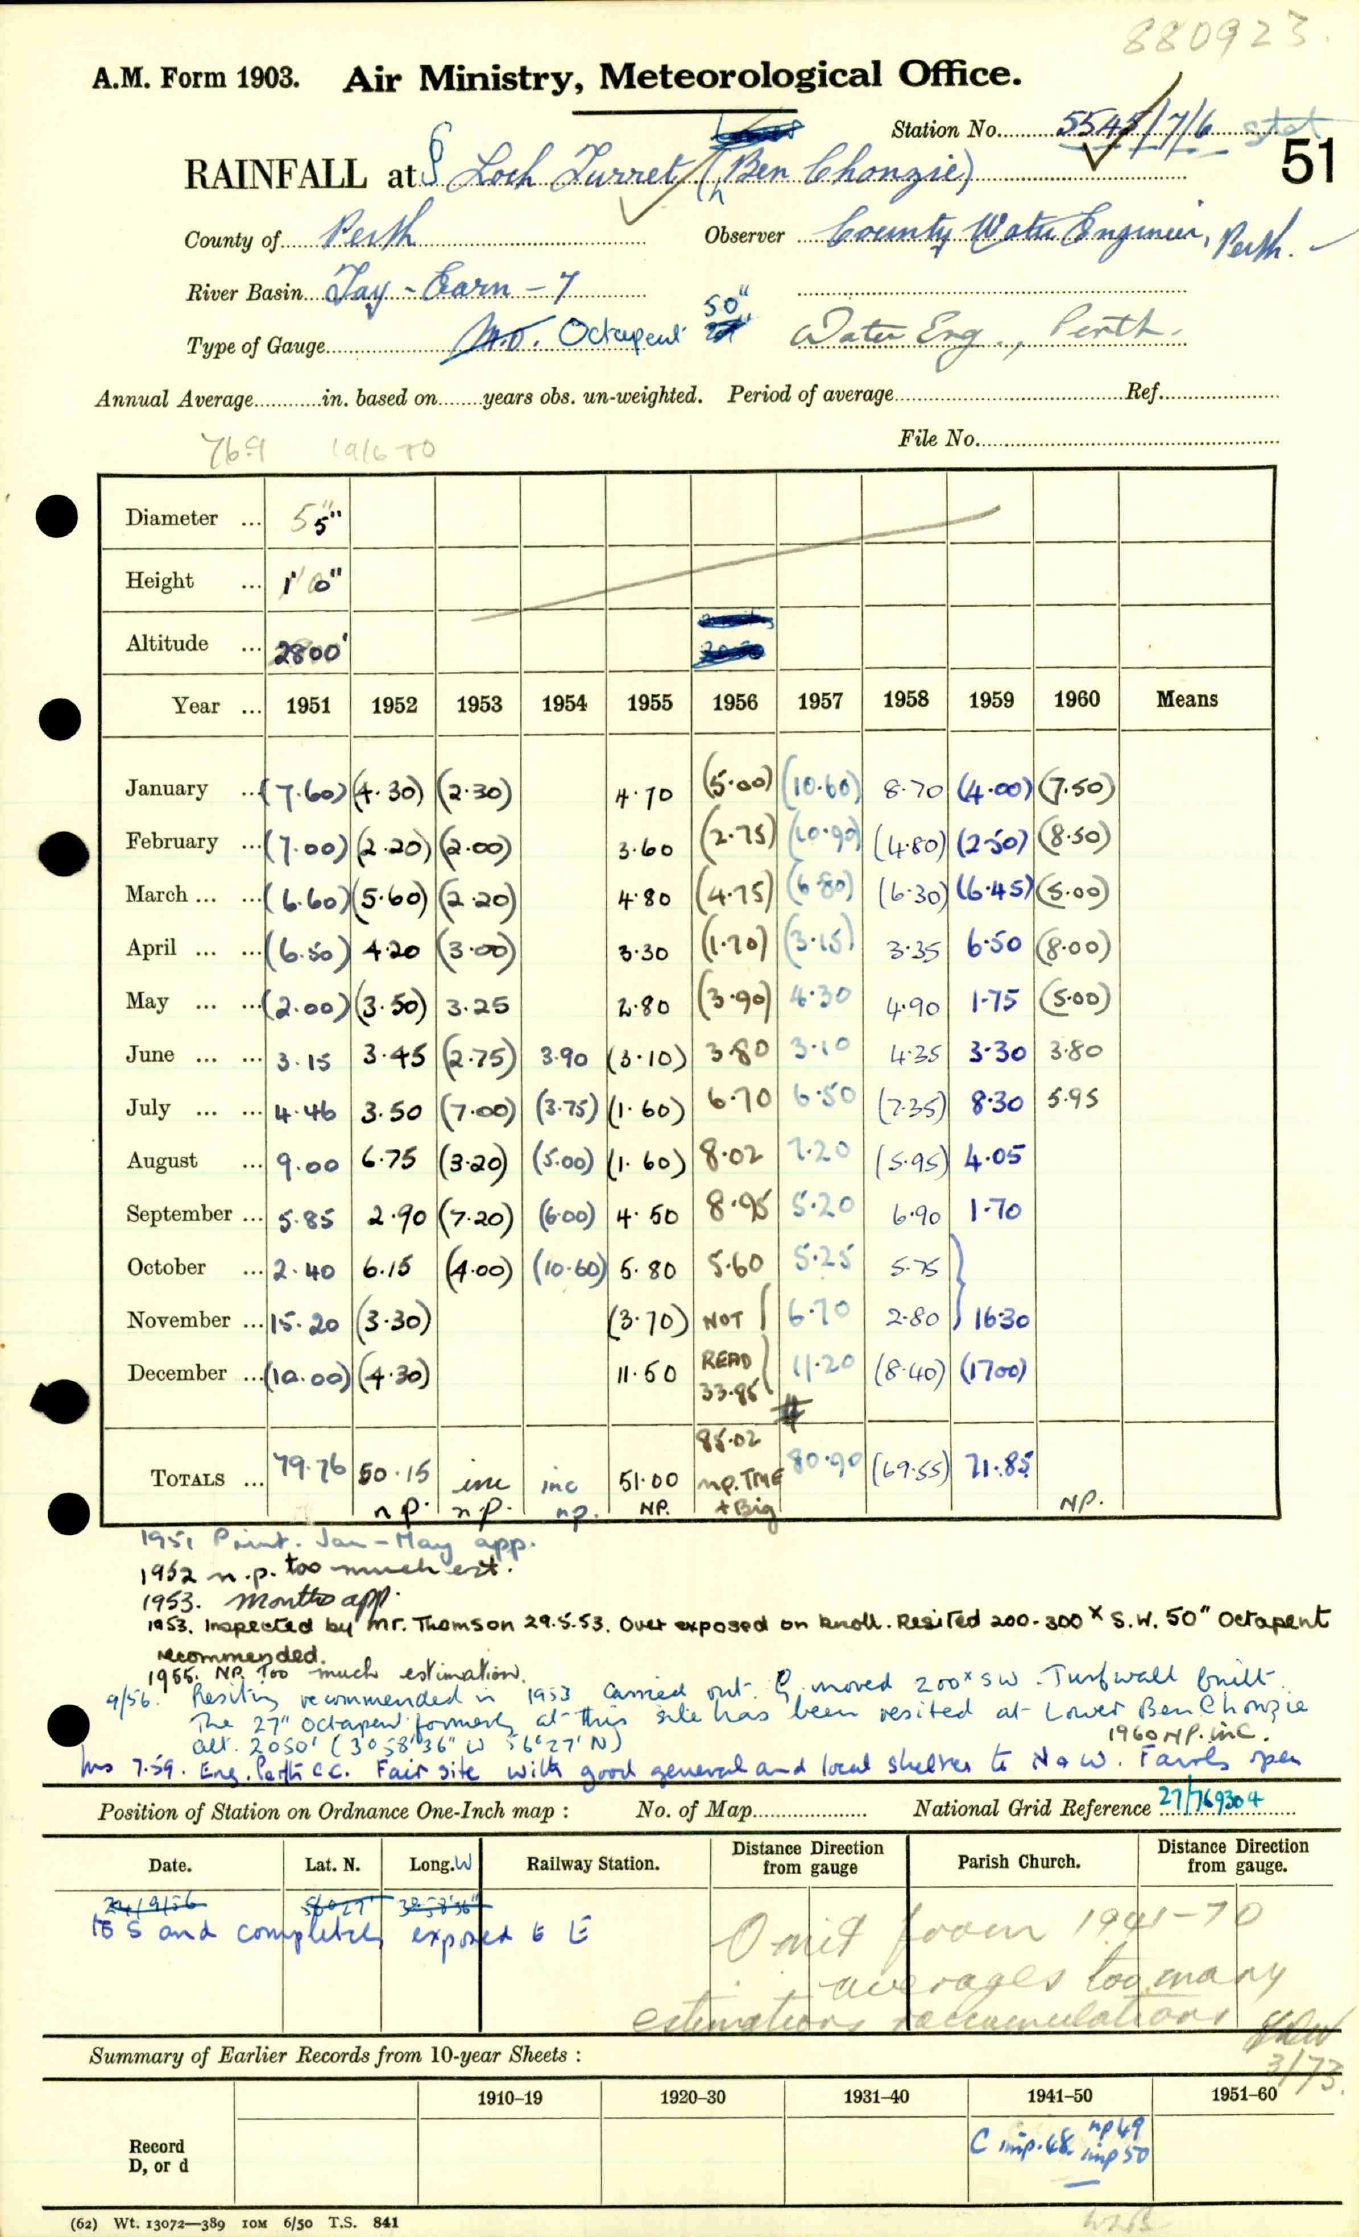 880923.
A.M. Form 1903. Air Ministry, Meteorological Office.
Station No. 5545/7/6 stat
51
RAINFALL at Loch Turret (Ben Chonzie)
County of Perth Observer County Water Engineer, Perth.
River Basin Tay - Earn - 7
Type of Gauge M.O. Octapent 50" 27" Water Eng., Perth.
Annual Average in. based on years obs. un-weighted. Period of average Ref.
File No.
76.9 1916-70
Diameter ... 5 5"
Height ... 1' 0"
Altitude ... 2800'
Year ... 1951 1952 1953 1954 1955 1956 1957 1958 1959 1960 Means
January ... (7.60) (4.30) (2.30) 4.70 (5.00) (10.60) 8.70 (4.00) (7.50)
February ... (7.00) (2.20) (2.00) 3.60 (2.75) (10.90) (4.80) (2.50) (8.50)
March ... ... (6.60) (5.60) (2.20) 4.80 (4.75) (6.80) (6.30) (6.45) (5.00)
April ... ... (6.50) 4.20 (3.00) 3.30 (1.70) (3.15) 3.35 6.50 (8.00)
May ... ... (2.00) (3.50) 3.25 2.80 (3.90) 4.30 4.90 1.75 (5.00)
June ... ... 3.15 3.45 (2.75) 3.90 (3.10) 3.80 3.10 4.35 3.30 3.80
July ... ... 4.46 3.50 (7.00) (3.75) (1.60) 6.70 6.50 (7.35) 8.30 5.95
August ... 9.00 6.75 (3.20) (5.00) (1.60) 8.02 7.20 (5.95) 4.05
September ... 5.85 2.90 (7.20) (6.00) 4.50 8.95 5.20 6.90 1.70
October ... 2.40 6.15 (4.00) (10.60) 5.80 5.60 5.25 5.75
November ... 15.20 (3.30) (3.70) NOT 6.70 2.80 16.30
December ... (10.00) (4.30) 11.50 READ 33.85 11.20 (8.40) (17.00)
TOTALS ... 79.76 50.15 inc inc 51.00 85.02 80.90 (69.55) 71.85
n.p. n.p. n.p. NP. n.p. TME + Big NP.
1951 Print. Jan - May app.
1952 n.p. too much est.
1953. Months app.
1953. Inspected by Mr. Thomson 29.5.53. Over exposed on knoll. Resited 200-300x S.W. 50" Octapent
recommended.
1955. NP. Too much estimation.
9/56. Resiting recommended in 1953 carried out. G moved 200x SW. Turfwall built.
The 27" Octapent formerly at this site has been resited at Lower Ben Chonzie
alt. 2050' (3°58'36" W 56°27' N) 1960 NP. inc.
Ins 7.59. Eng. Perth C.C. Fair site with good general and local shelter to N & W. Fairly open
Position of Station on Ordnance One-Inch map : No. of Map National Grid Reference 27/769304
Date. Lat. N. Long. W Railway Station. Distance Direction from gauge Parish Church. Distance Direction from gauge.
24/9/56 56°27' 3°58'36"
to S and completely exposed to E
Omit from 1941-70
averages too many
estimations & accumulations
3/73.
Summary of Earlier Records from 10-year Sheets :
1910–19 1920–30 1931–40 1941–50 1951–60
Record
D, or d
C inp. 48. np 49
inp 50
(62) Wt. 13072—389 10M 6/50 T.S. 841